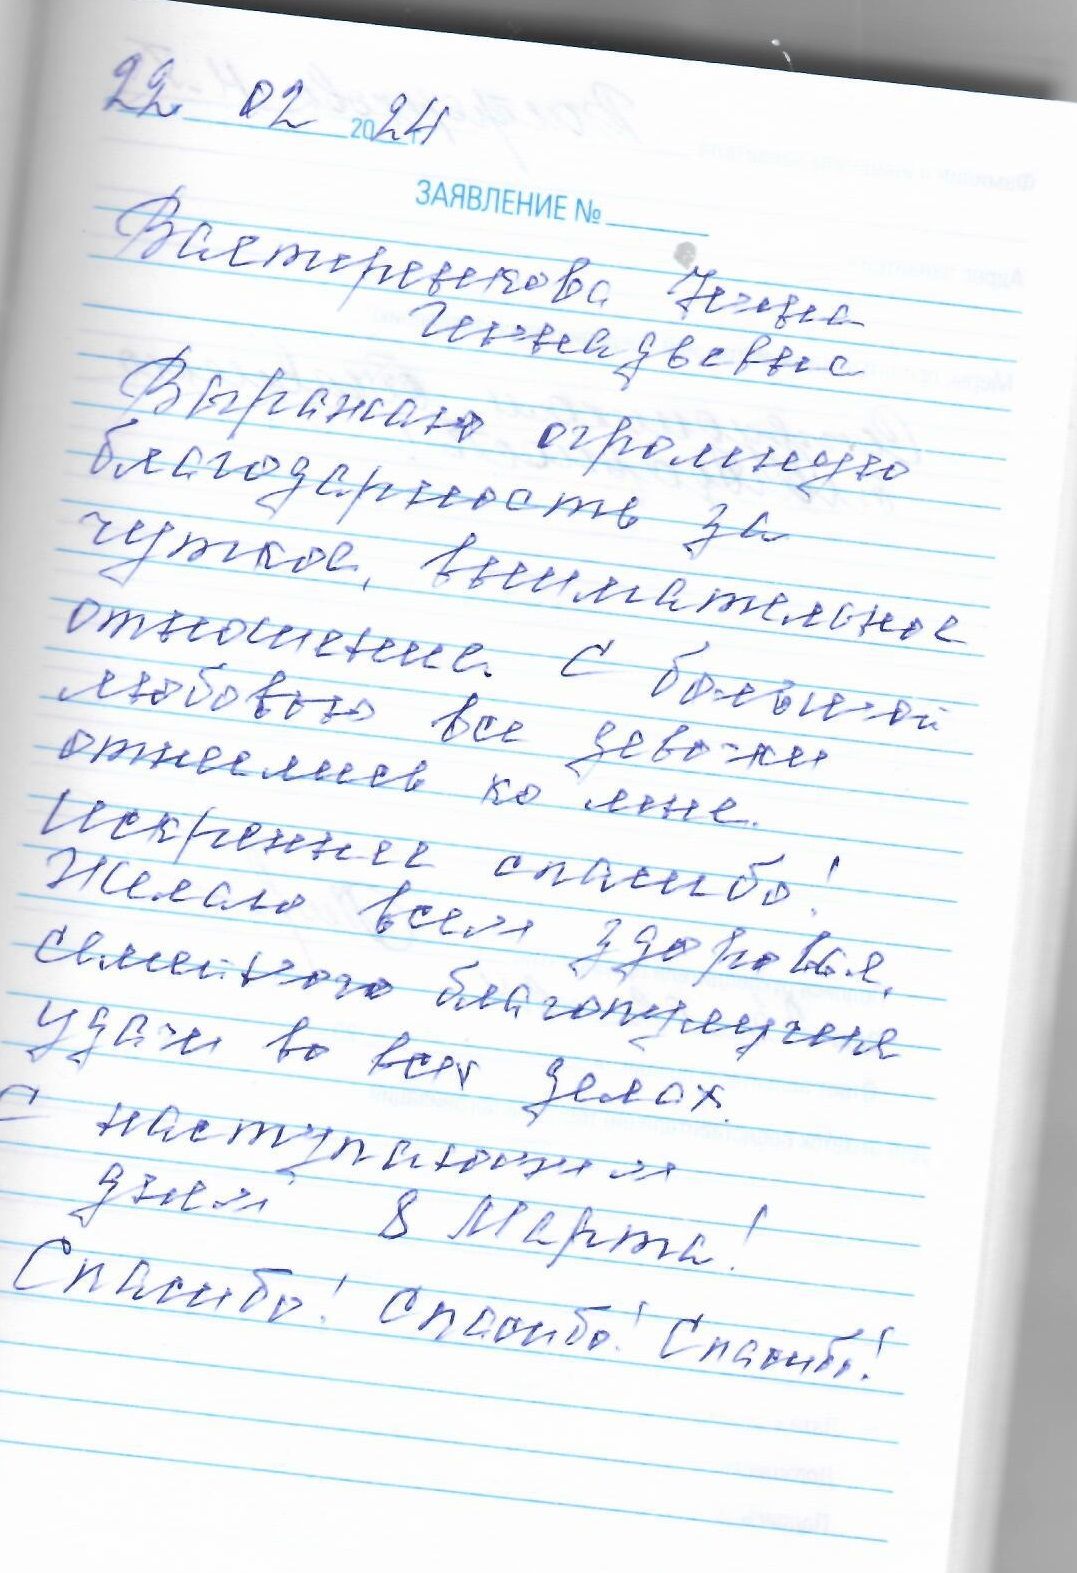 22 02 2024
ЗАЯВЛЕНИЕ №
Нина
Геннадьевна
Выражаю огромную
благодарность за
чуткое, внимательное
отношение. С большой
любовью все девочки
отнеслись ко мне.
Искреннее спасибо!
Желаю всем здоровья,
семейного благополучия
удачи во всех делах.
С наступающим
днем 8 Марта!
Спасибо! Спасибо! Спасибо!